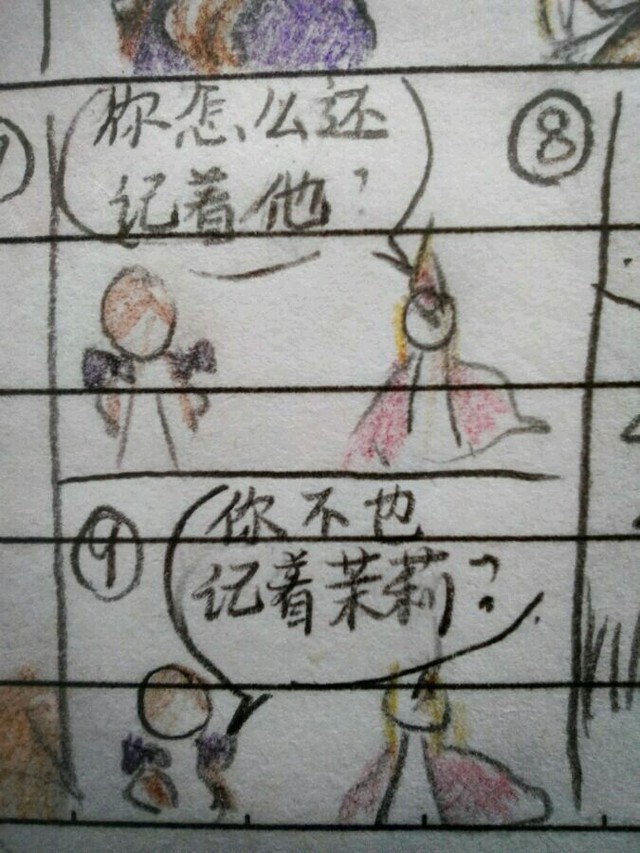 8
你怎么还
记着他?
9
你不也
记着茉莉?